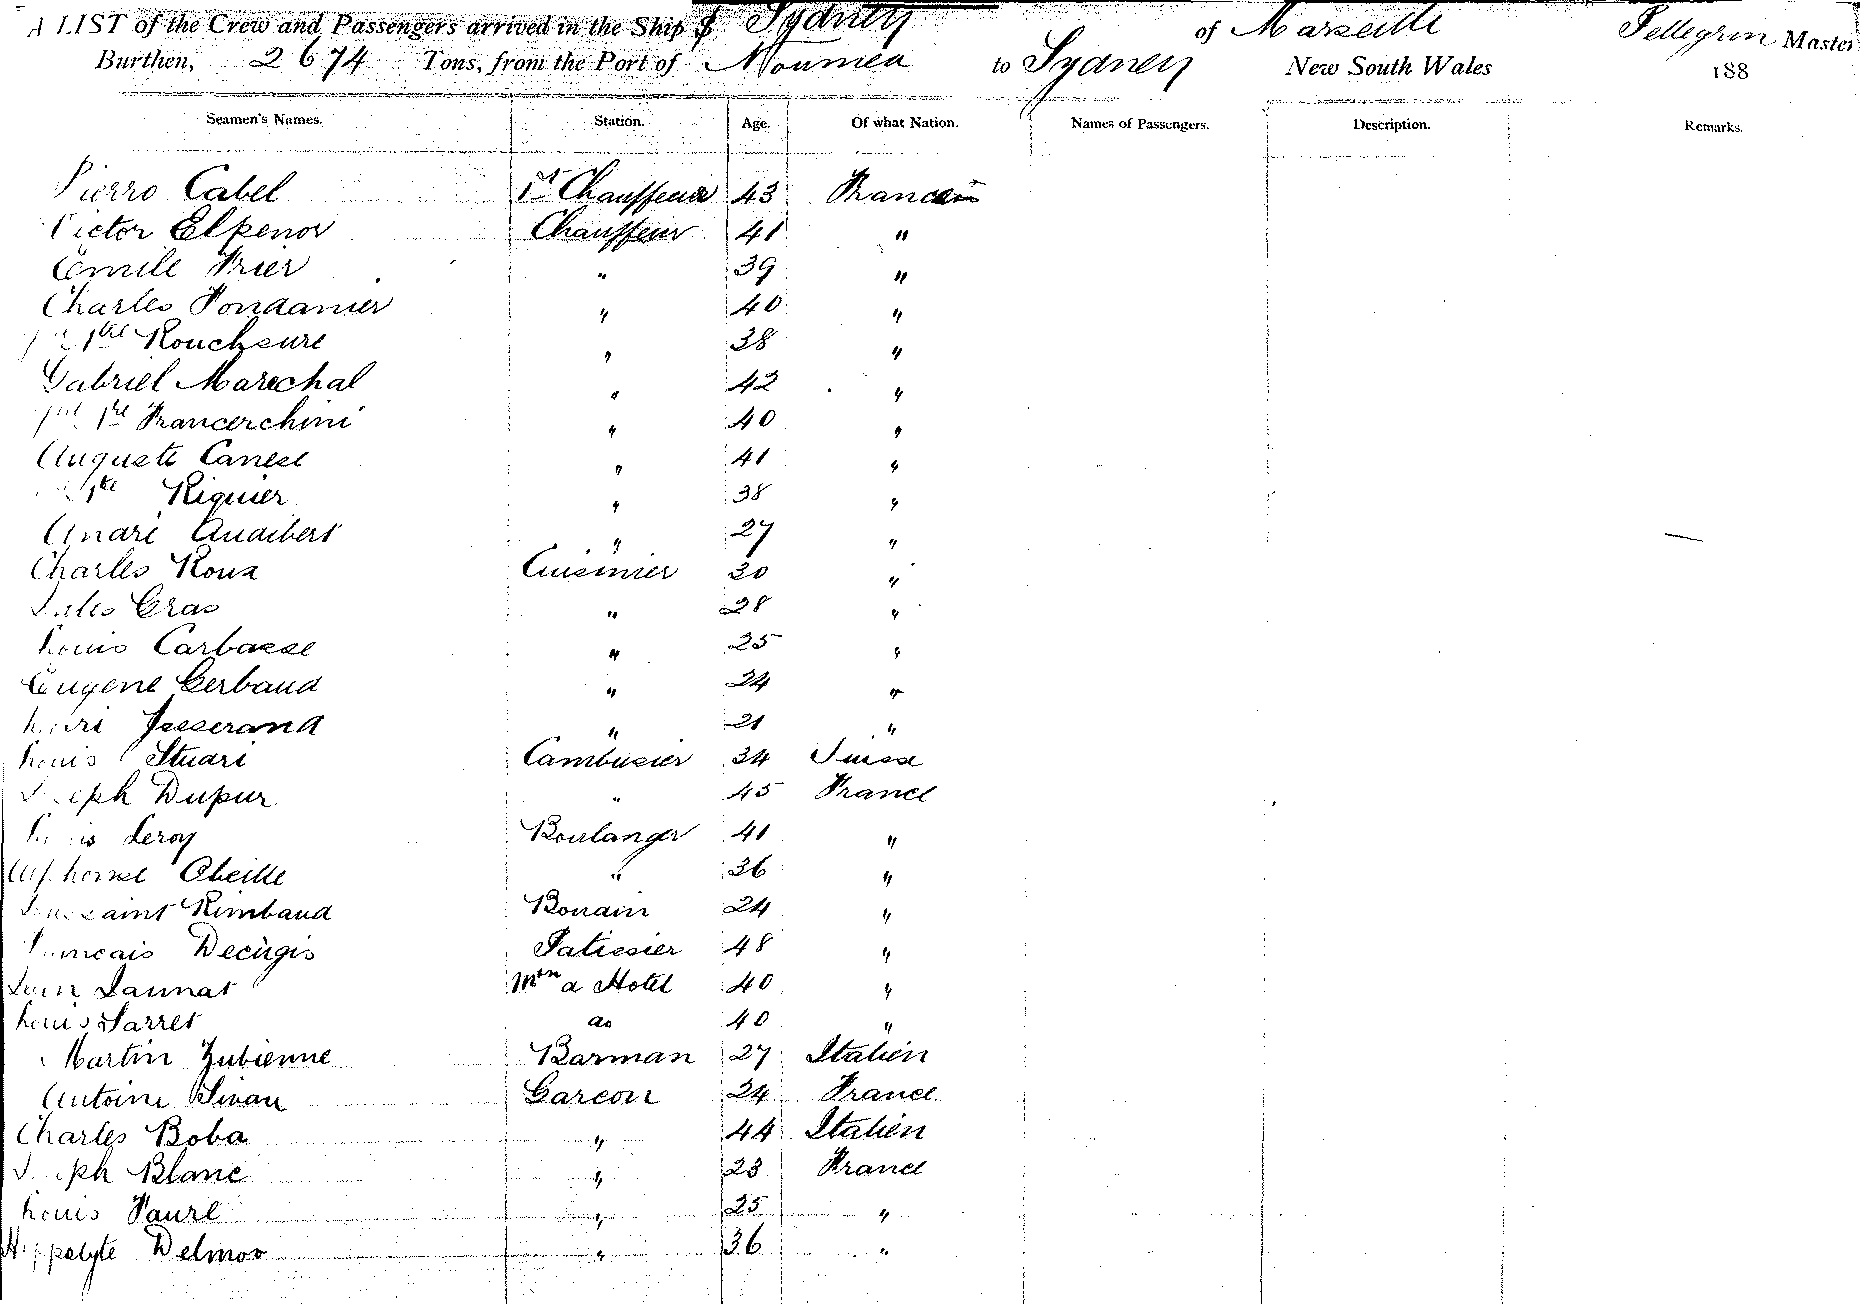 A LIST of the Crew and Passengers arrived in the Ship Sydney of Marseille Pellegrin Master
Burthen, 2674 Tons, from the Port of Noumea to Sydney New South Wales 188
Seamen's Names. Station. Age. Of what Nation. Names of Passengers. Description. Remarks.
Pierre Cabel 1er Chauffeur 43 Francais
Victor Elpenor Chauffeur 41 "
Emile Frier " 39 "
Charles Fondanier " 40 "
Roucheure " 38 "
Gabriel Marechal " 42 "
Francerchini " 40 "
Auguste Canese " 41 "
Riquier " 38 "
André Audibert " 27 "
Charles Roux Cuisinier 30 "
Jules Gras " 28 "
Louis Carbasse " 25 "
Eugene Gerbaud " 24 "
Henri Jsserand " 21 "
Louis Stuari Cambusier 34 Suisse
Joseph Dupur " 45 France
Louis Leroy Boulanger 41 "
Alphonse Abeille " 36 "
Toussaint Rimbaud 24 "
Francais Decugis Patissier 48 "
Jean Launat Mtre d Hotel 40 "
Louis Sarret do 40 "
Martin Zubienne Barman 27 Italien
Antoine Sivan Garcon 24 France
Charles Boba " 44 Italien
Joseph Blanc " 23 France
Louis Faure " 25 "
Hippolyte Delmos " 36 "